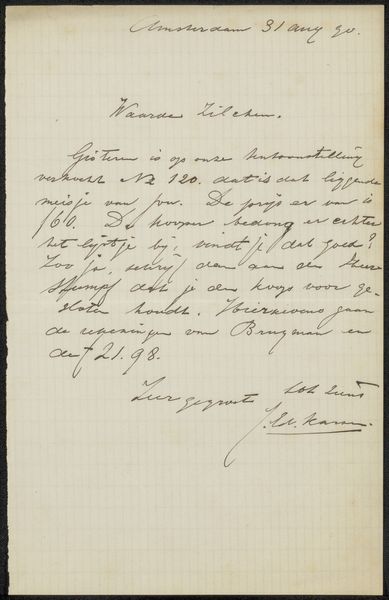 Amsterdam 31 aug 90.
Waarde Zilcken.
Gisteren is op onze tentoonstelling
verkocht No 120. dat is dat liggende
meisje van jou. De prijs er van is
ƒ 60. De kooper bedong er echter
het lijstje bij, vindt je dat goed?
Zoo ja, schrijf dan aan den Heer
Stumpf dat je den koop voor ge-
sloten houdt. Hiernevens gaan
de rekeningen van Brugman en
de ƒ 21.98.
Zeer gegroet tot zuns
J. Ed. Karsen